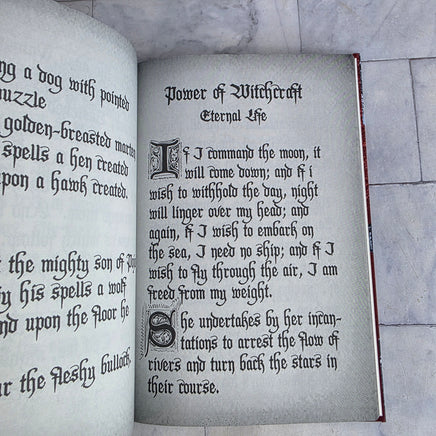 ng a dog with pointed
muzzle
golden-breasted marten
spells a hen created
upon a hawk created.
t the mighty son of
by his spells a wolf
and upon the floor he
ur the fleshy bullock,
Power of Witchcraft
Eternal Life
If I command the moon, it
will come down; and if i
wish to withhold the day, night
will linger over my head; and
again, if I wish to embark on
the sea, I need no ship; and if I
wish to fly through the air, I am
freed from my weight.
She undertakes by her incan-
tations to arrest the flow of
rivers and turn back the stars in
their course.